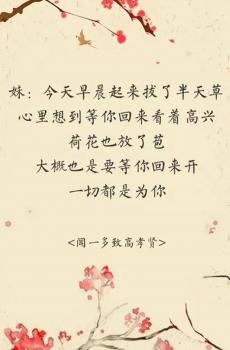 妹：今天早晨起来拔了半天草
心里想到等你回来看着高兴
荷花也放了苞
大概也是要等你回来开
一切都是为你
<闻一多致高孝贤>